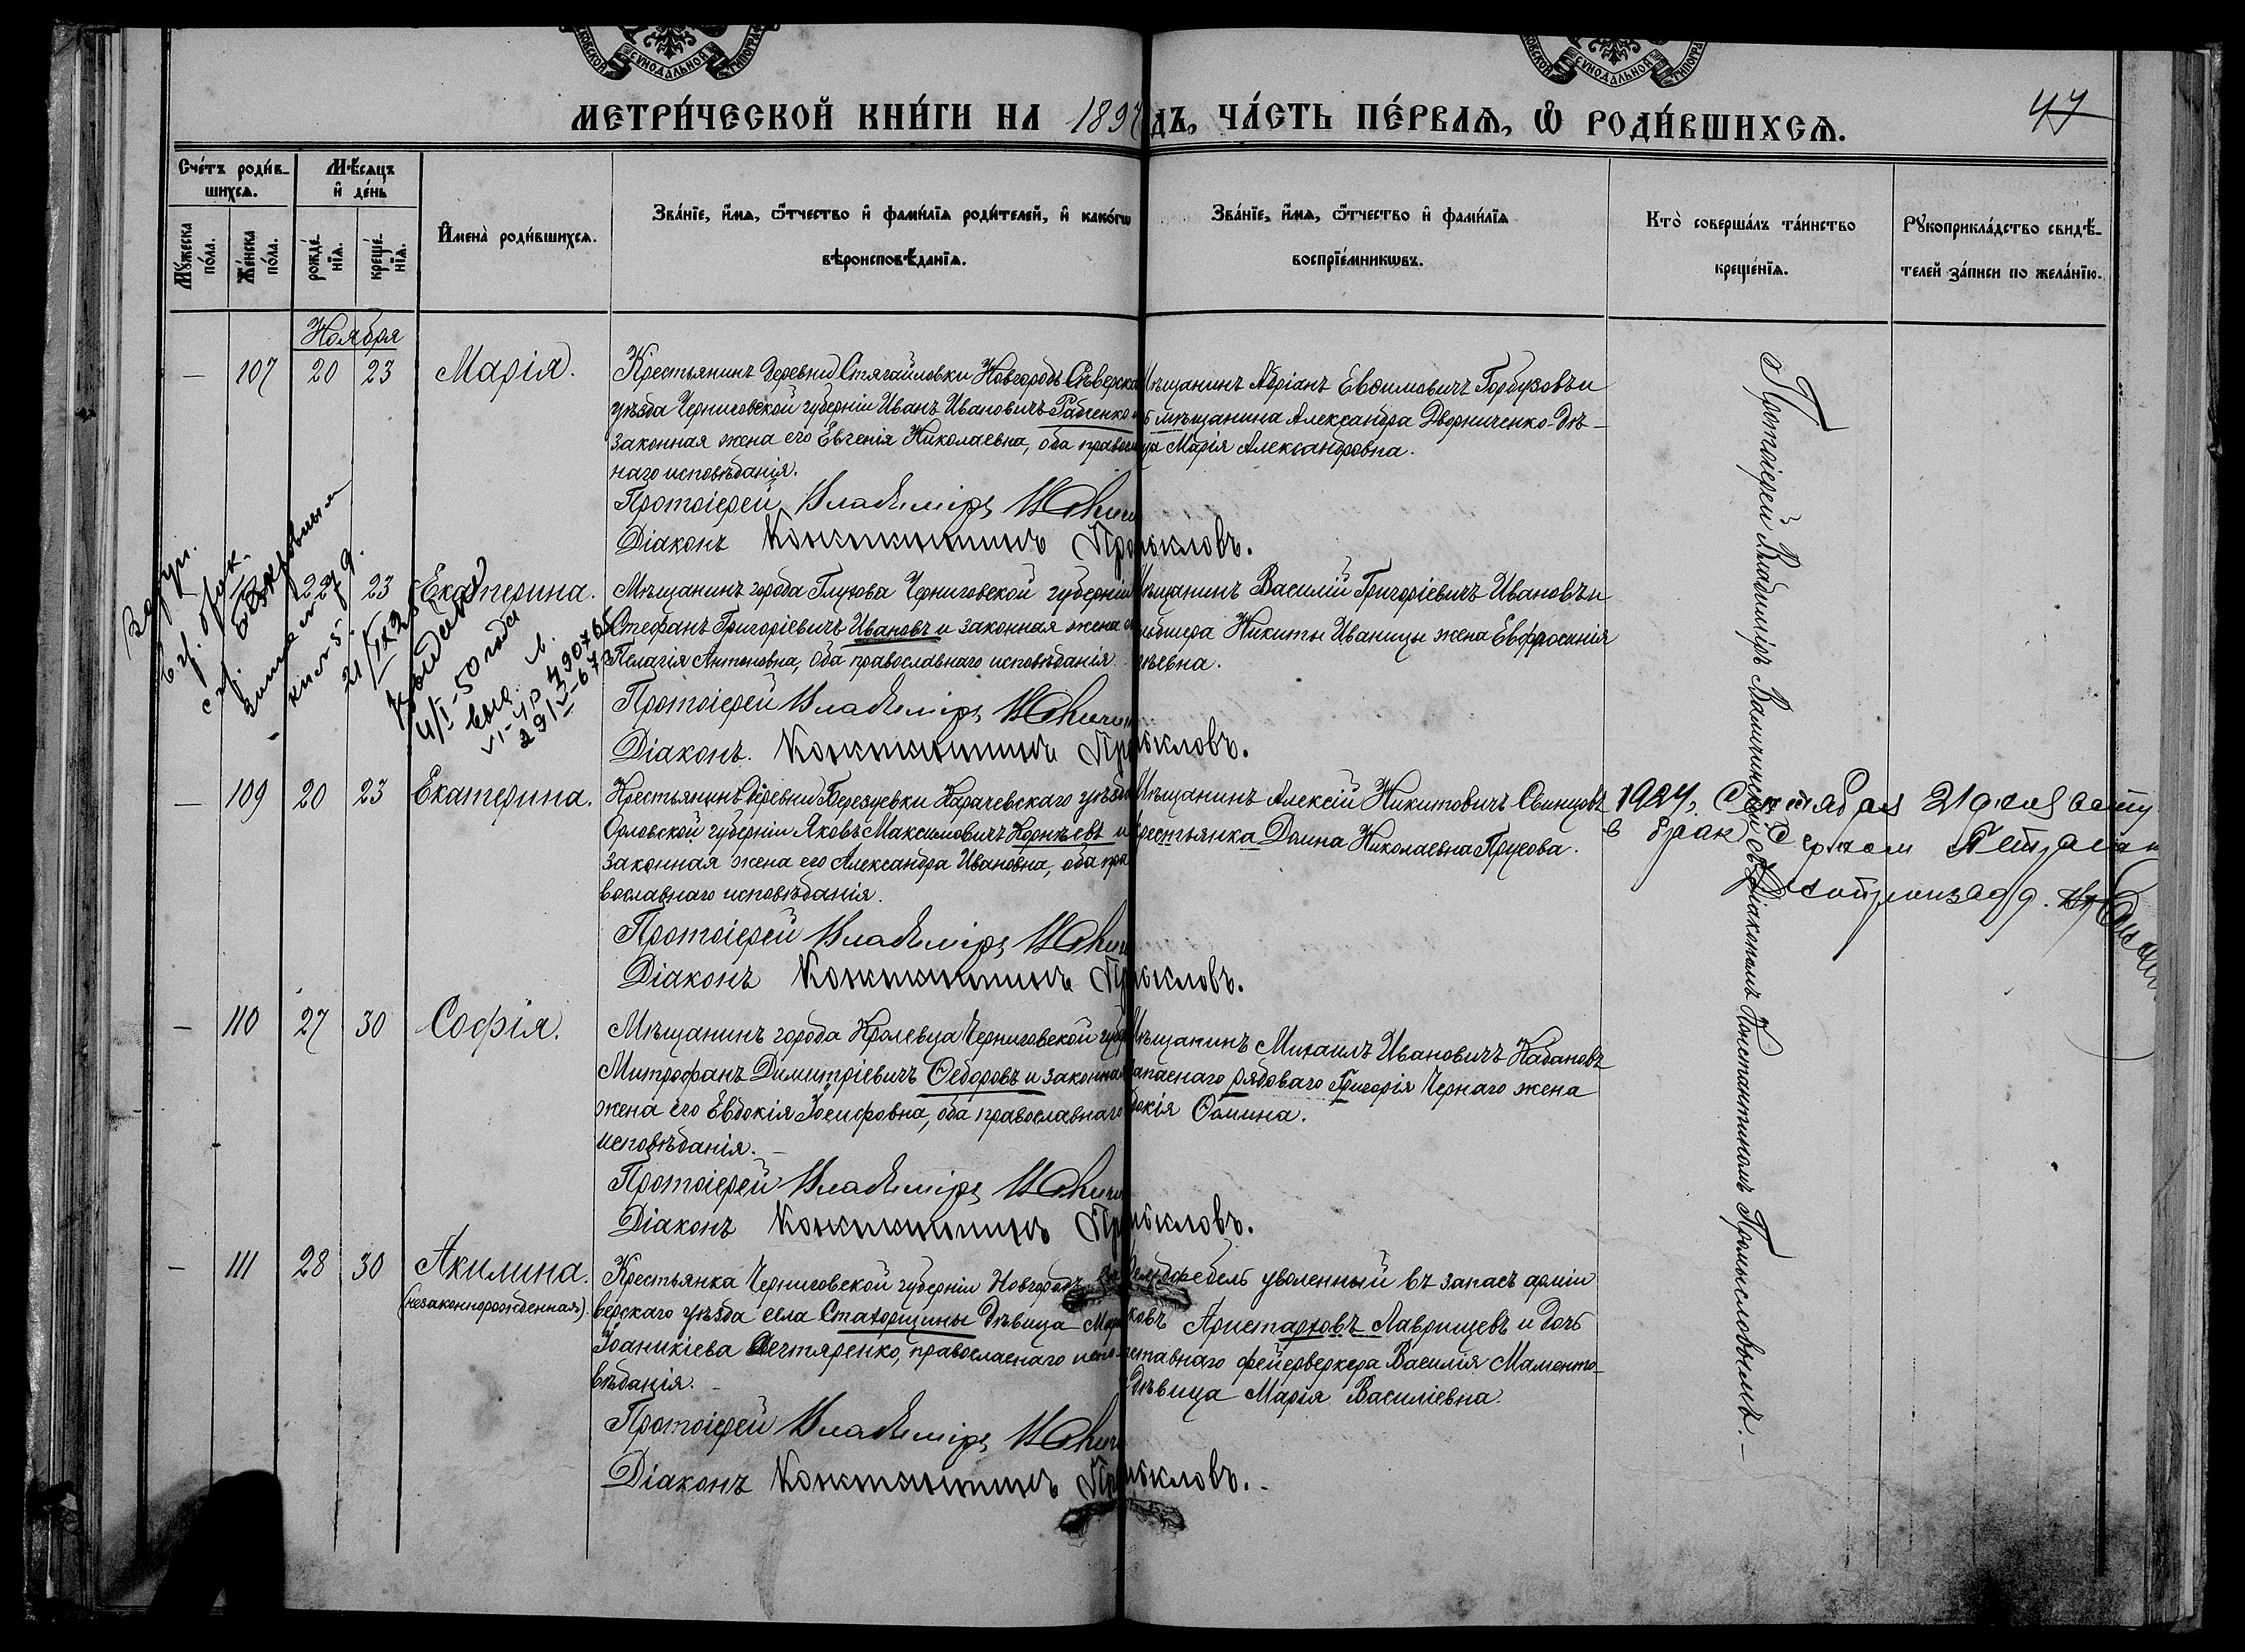 МЕТРИ́ЧЕСКОЙ КНИ́ГИ НА 189 ДЪ, ЧА́СТЬ ПЕ́РВАѦ, Ѡ РОДИ́ВШИХСѦ.
47
Сче́тъ роди́в-
шихсѧ.
Мѣ́сѧцъ
и҆ де́нь
Мꙋ́жеска
по́ла.
Же́нска
по́ла.
рожде́-
нїѧ.
креще́-
нїѧ.
И҆мена̀ роди́вшихсѧ.
Зва́нїе, и҆́мѧ, ѻ҆́тчество и҆ фами́лїѧ роди́телей, и҆ како́гѡ
вѣроисповѣ́данїѧ.
Зва́нїе, и҆́мѧ, ѻ҆́тчество и҆ фами́лїѧ
воспрїе́мникѡвъ.
Кто̀ соверша́лъ та́инство
креще́нїѧ.
Рꙋкоприкла́дство свидѣ́-
телей за́писи по жела́нїю.
Ноября
— 107 20 23 Марія.
Крестьянинъ деревни Стягайловки Новгородъ Сѣверска
уѣзда Черниговской губерніи Иванъ Ивановичъ Рабченко и
законная жена его Евгенія Николаевна, оба правосл
наго исповѣданія.
Протоіерей Владиміръ
Діаконъ Константинъ Промысловъ.
ѣщанинъ Адріанъ Евѳимовичъ Горбузовъ и
мѣщанина Александра Дворниченко дѣ-
ца Марія Александровна.
23 Екатерина.
Мѣщанинъ города Глухова Черниговской губерніи
Стефанъ Григоріевичъ Ивановъ и законная жена
Пелагія Антоновна, оба православнаго исповѣданія
Протоіерей Владиміръ
Діаконъ. Константинъ Промысловъ.
ѣщанинъ Василій Григоріевичъ Ивановъ и
Никиты Иваницы жена Евфросинія
евна.
21/IX 23
4/I-50 года
— 109 20 23 Екатерина.
Крестьянинъ деревни Березуевки Карачевскаго уѣзда
Орловской губерніи Яковъ Максимовичъ Корнѣевъ и
законная жена его Александра Ивановна, оба пра
вославнаго исповѣданія.
Протоіерей Владиміръ
Діаконъ Константинъ Промысловъ.
ѣщанинъ Алексій Никитовичъ Свинцовъ
рестьянка Домна Николаевна Прусова.
1924 г. Сентября 21 дня
в брак с
— 110 27 30 Софія.
Мѣщанинъ города Кролевца Черниговской губ
Митрофанъ Димитріевичъ Ѳедоровъ и законная
жена его Евдокія Іосифовна, оба православнаго
исповѣданія. —
Протоіерей Владиміръ
Діаконъ Константинъ Промысловъ.
ѣщанинъ Михаилъ Ивановичъ Кабановъ
апаснаго рядоваго Григорія Чернаго жена
окія Ѳомина.
— 111 28 30 Акилина.
(незаконнорожденная).
Крестьянка Черниговской губерніи Новгородъ
верскаго уѣзда села Стахорщины дѣвица Мар
Іоаникіева Дегтяренко, православнаго испо
вѣданія. —
Протоіерей Владиміръ
Діаконъ Константинъ Промысловъ. -
ельдфебель уволенный въ запасъ арміи
ковъ Аристарховъ Лаврищевъ и дочь
ставнаго фейерверкера Василія Маменто-
дѣвица Марія Василіевна.
Протоіерей Владиміръ съ Діакономъ Константиномъ Промысловымъ. —